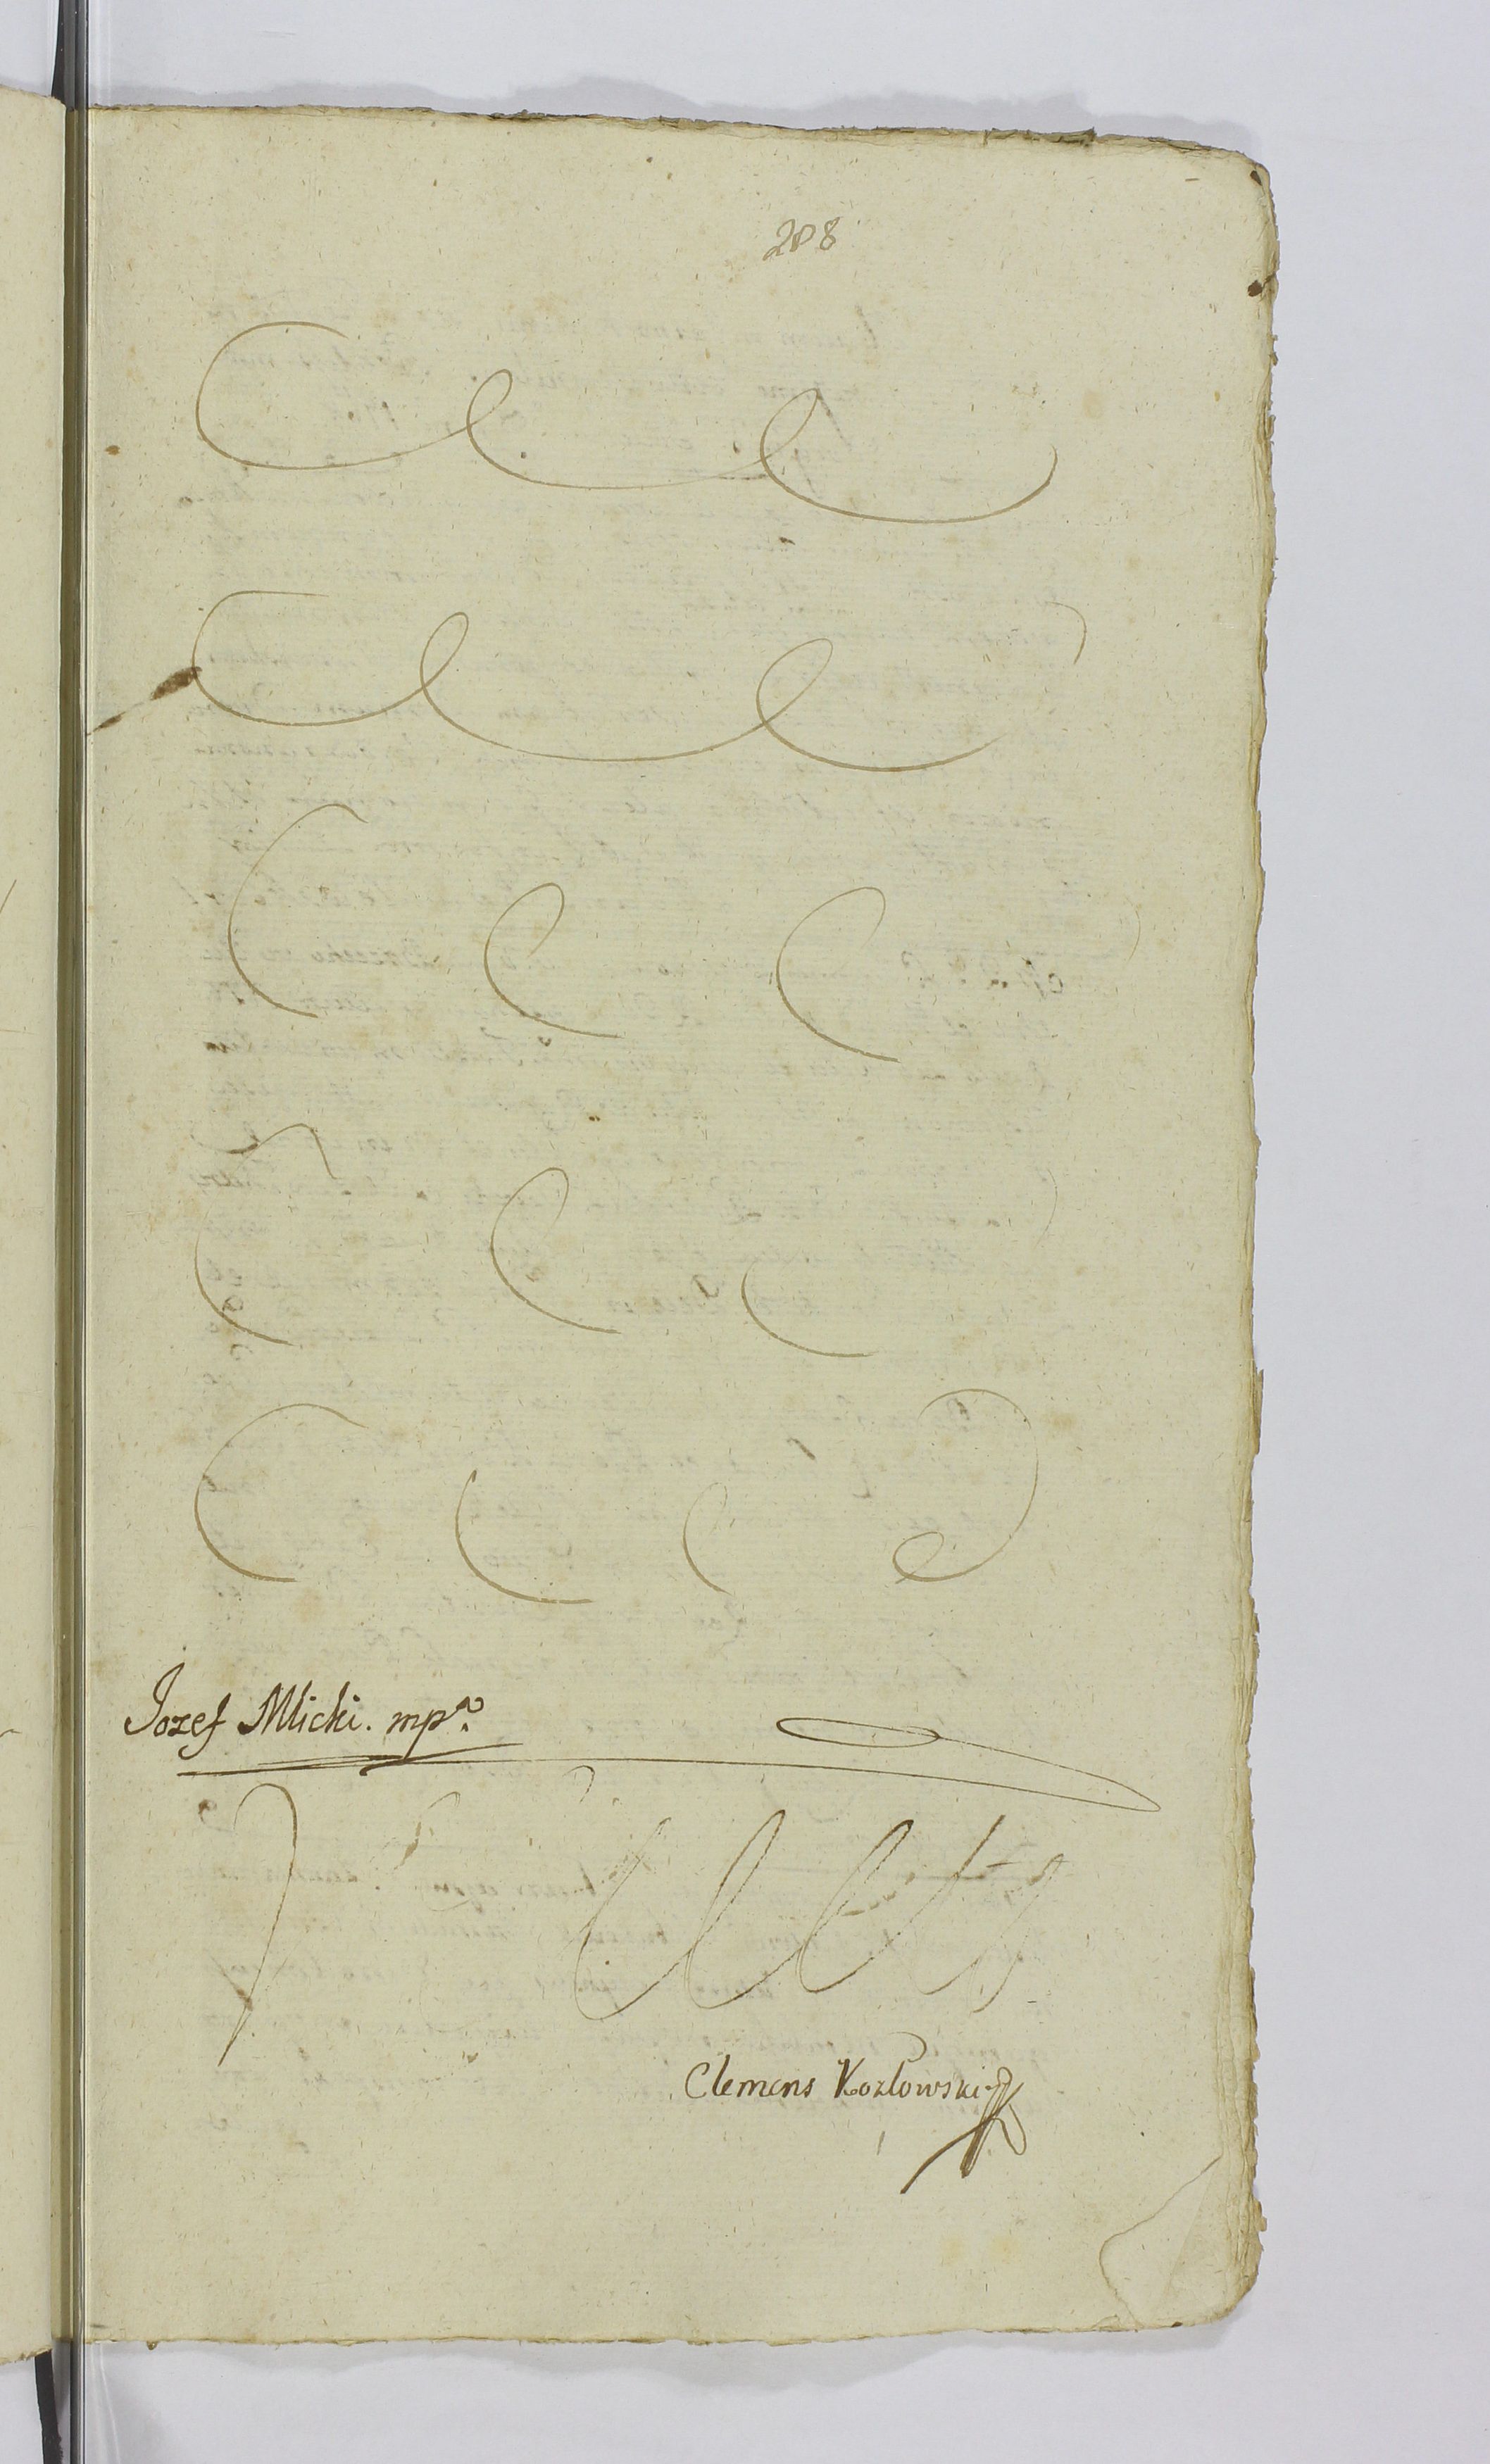 208
Jozef Mlicki. mpa.
Clemens Kozłowski